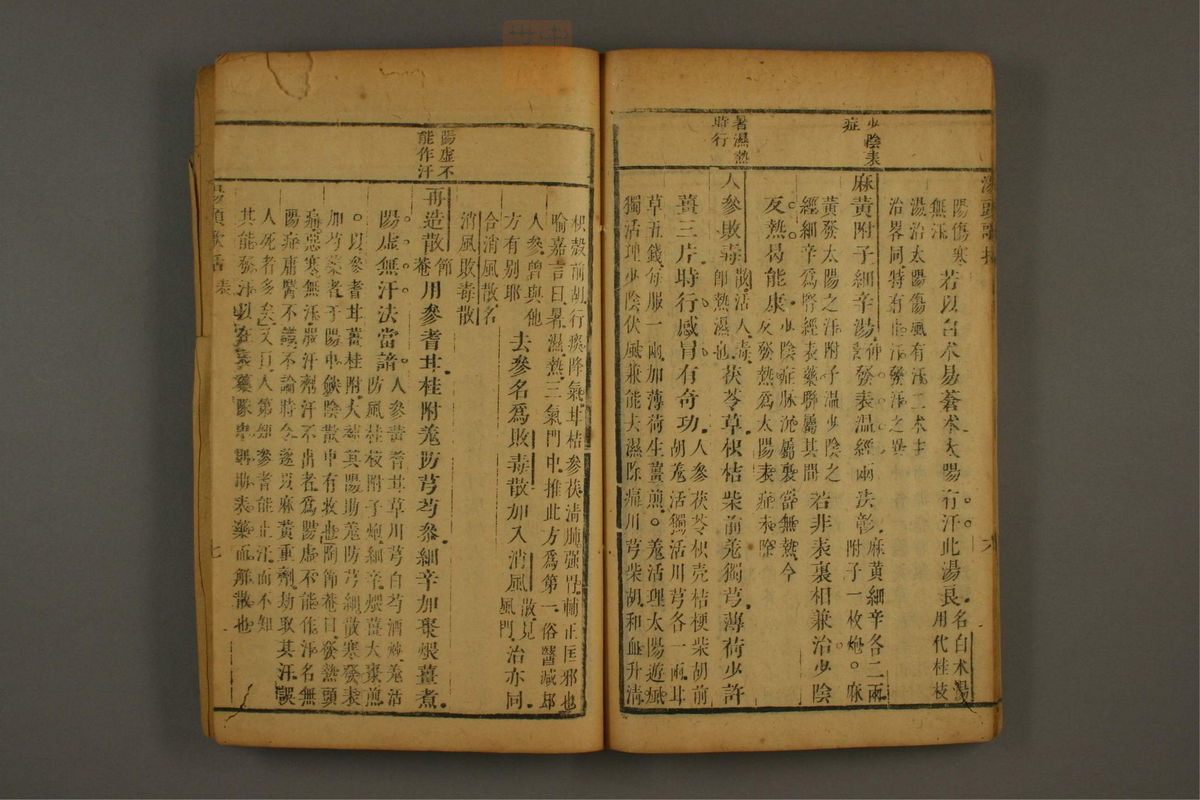 少陰表
症
暑濕熱
時行
湯頭歌括
陽傷寒
無汗
若以白朮易蒼朮太陽有汗此湯良
名白朮湯
用代桂枝
湯治太陽傷風有汗二朮主
治畧同特有止汗發汗之異
麻黃附子細辛湯
仲
景
發表溫經兩法彰
麻黃細辛各二兩
附子一枚炮○麻
黃發太陽之汗附子溫少陰之
經細辛爲腎經表藥聯屬其間
若非表裏相兼治少陰
反熱曷能康
少陰症脉沉屬裏當無熱今
反發熱爲太陽表症未除
人參敗毒
散活人毒
卽熱濕也
茯苓草枳桔柴前羗獨芎薄荷少許
薑三片時行感冒有奇功
人參茯苓枳壳桔梗柴胡前
胡羗活獨活川芎各一兩甘
草五錢每服一兩加薄荷生薑煎○羗活理太陽遊風
獨活理少陰伏風兼能去濕除痛川芎柴胡和血升淸
陽虛不
能作汗
枳殼前胡行痰降氣甘桔參茯淸肺强胃輔正匡邪也
喻嘉言曰暑濕熱三氣門中推此方爲第一俗醫减却
人參曾與他
方有別耶
去參名爲敗毒散加入消風
散見
風門
治亦同
合消風散名
消風敗毒散
再造散
節
菴
用參耆甘桂附羗防芎芍參細辛加棗煨薑煮
陽虛無汗法當諳
人參黃耆甘草川芎白芍酒炒羗活
防風桂枝附子炮細辛煨薑大棗煎
○以參耆甘薑桂附大補其陽助羗防芎細散寒發表
加芍藥者于陽中斂陰散中有收也陶節菴曰發熱頭
痛惡寒無汗服汗劑汗不出者爲陽虛不能作汗名無
陽症庸醫不識不論時令遂以麻黃重劑劫取其汗誤
人死者多矣又有人第知參耆能止汗而不知
其能發汗以在表藥隊中則助表藥而解散也
湯頭歌括
表
七